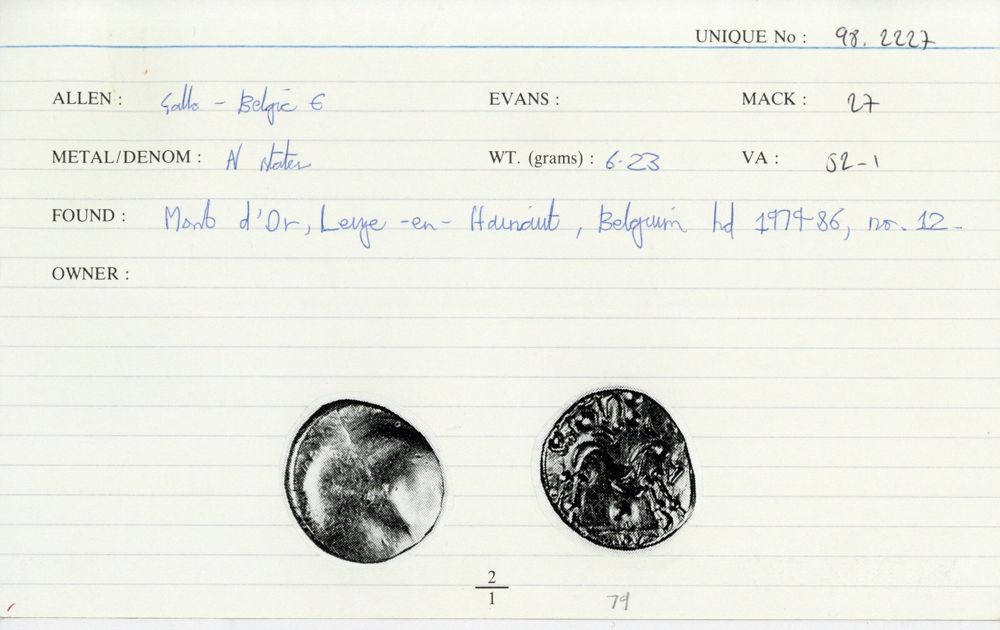 UNIQUE No : 98. 2227
ALLEN : Gallo - Belgic E EVANS : MACK : 27
METAL/DENOM : N stater WT. (grams) : 6.23 VA : 52-1
FOUND : Mont d'Or, Leuze -en- Hainaut, Belguim hd 1979-86, no. 12-
OWNER :
2
1
79